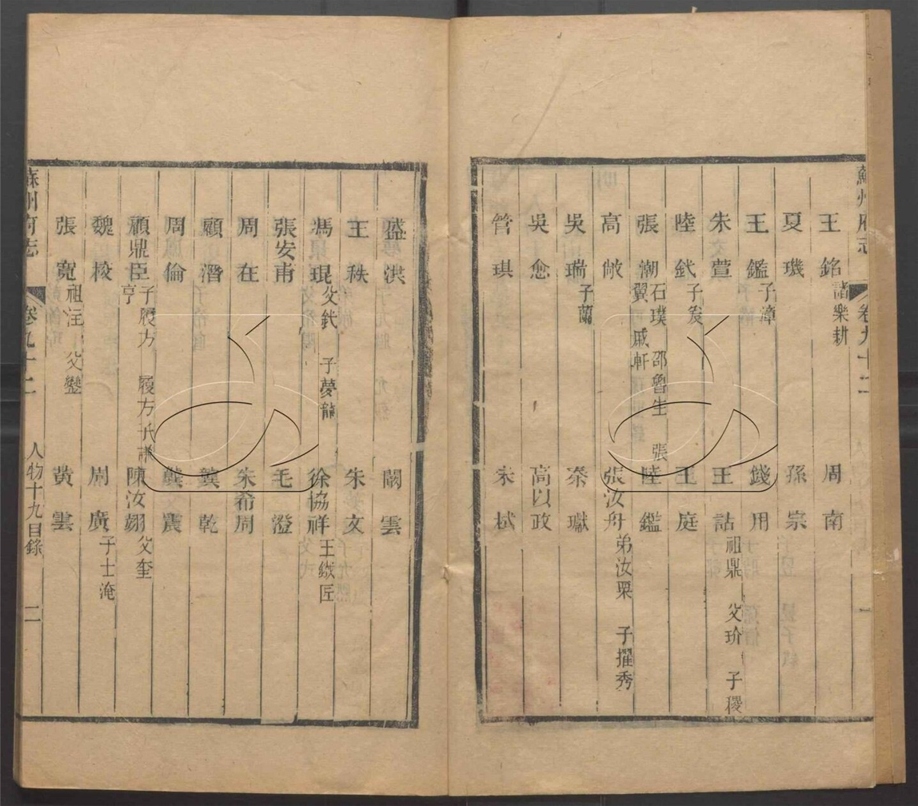 蘇州府志 卷九十二 一
王銘 諸樂耕 周南
夏璣 孫宗
王鑑 子漳 錢用
朱萱 王詰 祖鼎 父玠 子稷
陸釴 子岌 王庭
張潮 石璞 邵魯生 張翼 戚軒 陸鑑
高敞 張汝舟 弟汝栗 子擢秀
吳瑞 子蘭 秦瓛
吳愈 高以政
管琪 朱栻
盛洪 閻雲
王秩 朱文
馮琨 父釴 子夢龍 徐協祥 王綍匠
張安甫 毛澄
周在 朱希周
顧潛 龔乾
周倫 龔震
顧鼎臣 子履方 履方子 亨 陳汝翊 父奎
魏校 周廣 子士淹
張寬 祖注 父鑾 黃雲
蘇州府志 卷九十二 人物十九目錄 二